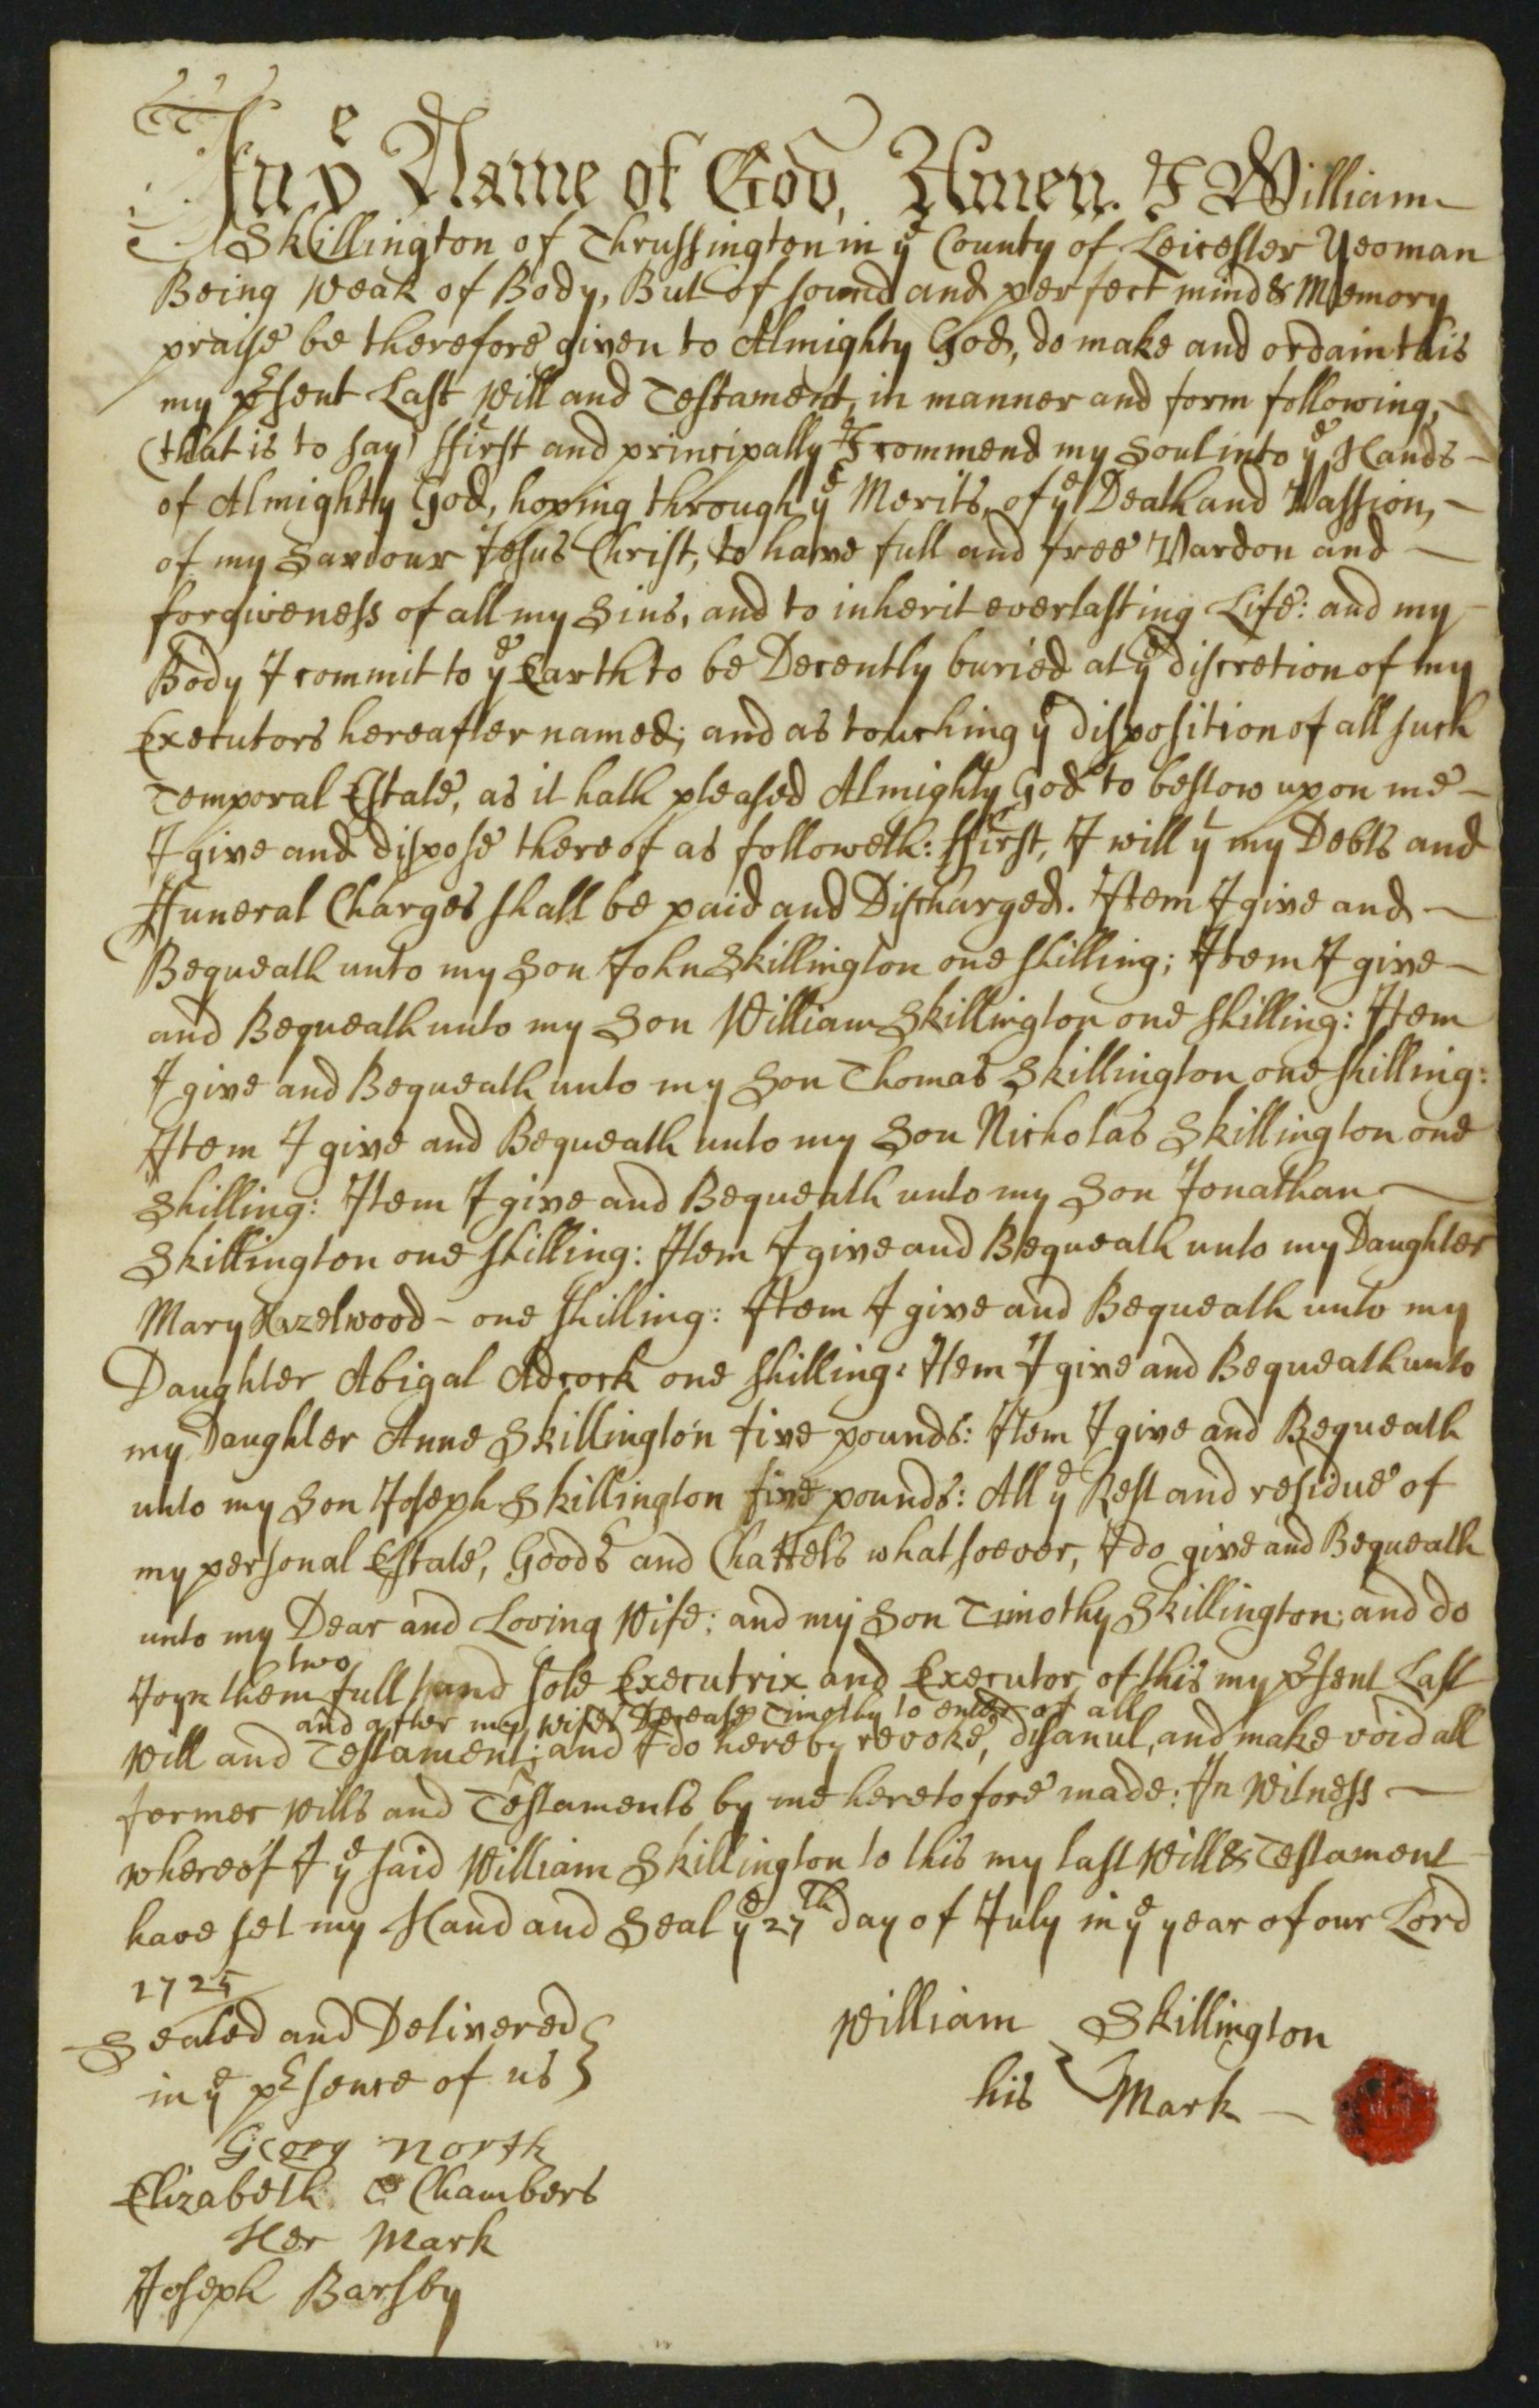 In ye Name of God, Amen. I William
Skillington of Thrussington in ye County of Leicester Yeoman
Being weak of Body, But of sound and perfect mind & Memory
praise be therefore given to Almighty God, do make and ordain this
my prsent Last Will and Testament, in manner and form following,
(that is to say) ffirst and principally I commend my Soul into ye Hands
of Almighty God, hoping through ye Merits, of ye Death and Passion,
of my Saviour Jesus Christ, to have full and free Pardon and
forgiveness of all my Sins, and to inherit everlasting Life: and my
Body I commit to ye Earth to be Decently buried at ye discretion of my
Executors hereafter named; and as touching ye disposition of all such
Temporal Estate, as it hath pleased Almighty God to bestow upon me
I give and dispose thereof as followeth: ffirst, I will yt my Debts and
ffuneral Charges shall be paid and Discharged. Item I give and
Bequeath unto my Son John Skillington one shilling; Item I give
and Bequeath unto my Son William Skillington one shilling: Item
I give and Bequeath unto my Son Thomas Skillington one shilling:
Item I give and Bequeath unto my Son Nicholas Skillington one
Shilling: Item I give and Bequeath unto my Son Jonathan
Skillington one shilling: Item I give and Bequeath unto my Daughter
Mary Hazelwood - one shilling: Item I give and Bequeath unto my
Daughter Abigal Adcock one shilling: Item I give and Bequeath unto
my Daughter Anne Skillington five pounds: Item I give and Bequeath
unto my Son Joseph Skillington five pounds: All ye Rest and residue of
my personal Estate, Goods and Chattels whatsoever, I do give and Bequeath
unto my Dear and Loving Wife; and my Son Timothy Skillington; and do
two
Joyn them full and sole Executrix and Executor of this my prsent Last
and after my wifes Decease Timothy to enter of all
Will and Testament; and I do hereby revoke, disanul, and make void all
former Wills and Testaments by me heretofore made: In Witness
whereof I ye said William Skillington to this my last Will & Testament
have set my Hand and Seal ye 27th day of July in ye year of our Lord
1725
Sealed and Delivered
in ye prsence of us
William Skillington
his Mark
Georg North
Elizabeth Chambers
Her Mark
Joseph Barsby